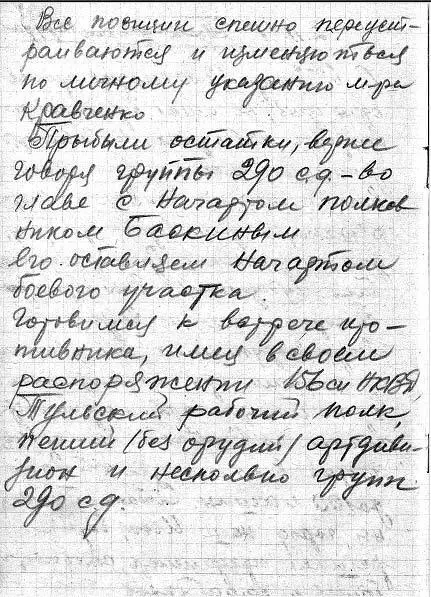 Все позиции спешно переуст-
раиваются и изменяються
по личному указанию м-ра
Кравченко
Прибыли остатки, вернее
говоря группы 290 с.д. – во
главе с Начартом полков
ником Баскиным
Его оставляем Начартом
боевого участка.
Готовимся к встрече про-
тивника, имея в своем
распоряжении 156 сп НКВД,
Тульский рабочий полк,
пеший /без орудий/ артдиви-
зион и несколько групп
290 с.д.